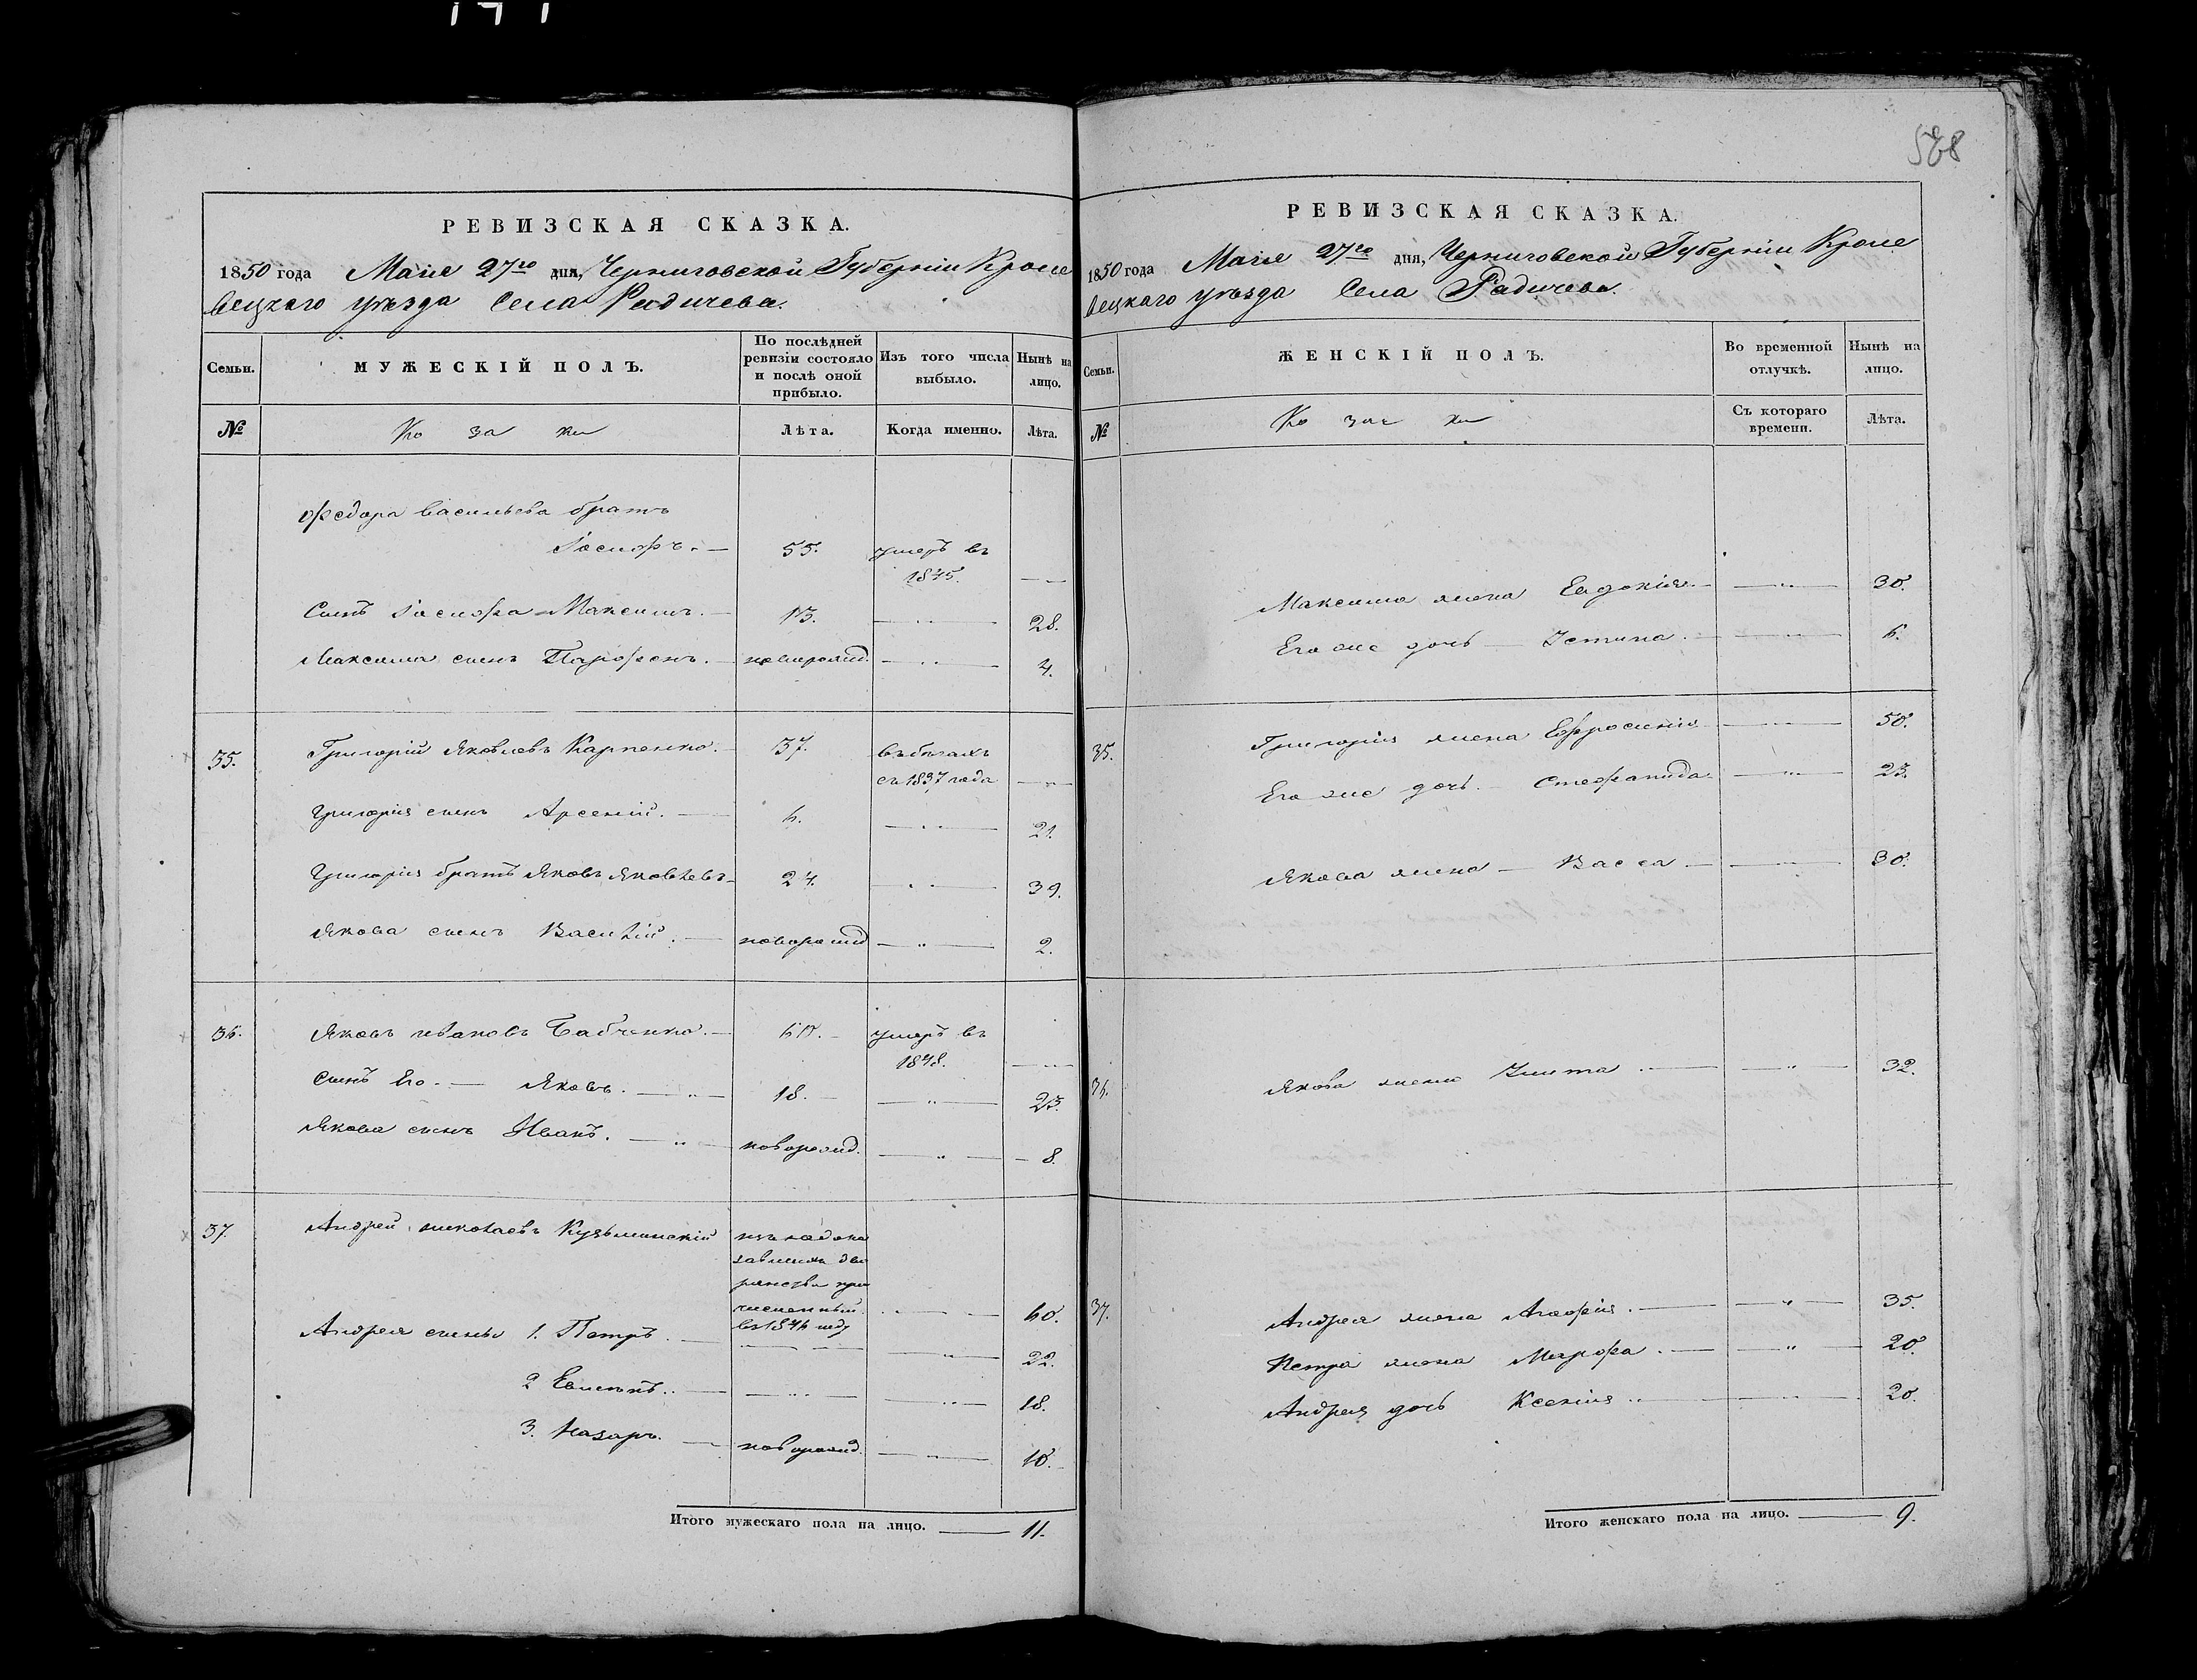 568
РЕВИЗСКАЯ СКАЗКА.
1850 года Маiя 27го дня, Черниговской Губернiи Кроле
вецкаго уѣзда Села Радичева.
Семьи.
МУЖЕСКІЙ ПОЛЪ.
По послѣдней
ревизіи состояло
и послѣ оной
прибыло.
Изъ того числа
выбыло.
Нынѣ на
лицо.
№
Ко за ки
Лѣта.
Когда именно.
Лѣта.
Ѳедора Васильева братъ
Іосифъ. 55. умеръ въ
1845.
Сынъ Іосифа Максимъ. 13. 28.
Максима сынъ Парфенъ. новорожд. 4.
35. Григорій Яковлевъ Карпенко. 37. въ бѣгахъ
съ 1837 года
Григорія сынъ Арсеній. 6. 21.
Григорія братъ Яковъ Яковлевъ 24. 39.
Якова сынъ Василій. новорожд 2.
36. Яковъ Ивановъ Бабченко. 60. умеръ въ
1848.
Сынъ Его Яковъ. 18. 23.
Якова сынъ Иванъ. новорожд. 8.
37. Андрей Николаевъ Кузьминскій
численный
въ 1846 году 60.
Андрея сыны 1. Петръ. 22.
2 18.
3. Назаръ. новорожд. 10.
Итого мужескаго пола на лицо. 11.
РЕВИЗСКАЯ СКАЗКА.
1850 года Маiя 27го дня, Черниговской Губернiи Кроле
вецкаго уѣзда Села Радичева.
Семьи.
ЖЕНСКІЙ ПОЛЪ.
Во временной
отлучкѣ.
Нынѣ на
лицо.
№
Ко зач ки
Съ котораго
времени.
Лѣта.
Максима жена Евдокія 30.
Его же дочь Устина. 6.
35. Григорія жена Ефросинія 50.
Его же дочь. Стефанида 23.
Якова жена Васса 30.
36. Якова жена Улита. 32.
37. Андрея жена Агафія. 35.
Петра жена Марфа. 20.
Андрея дочь Ксенія 20.
Итого женскаго пола на лицо. 9.